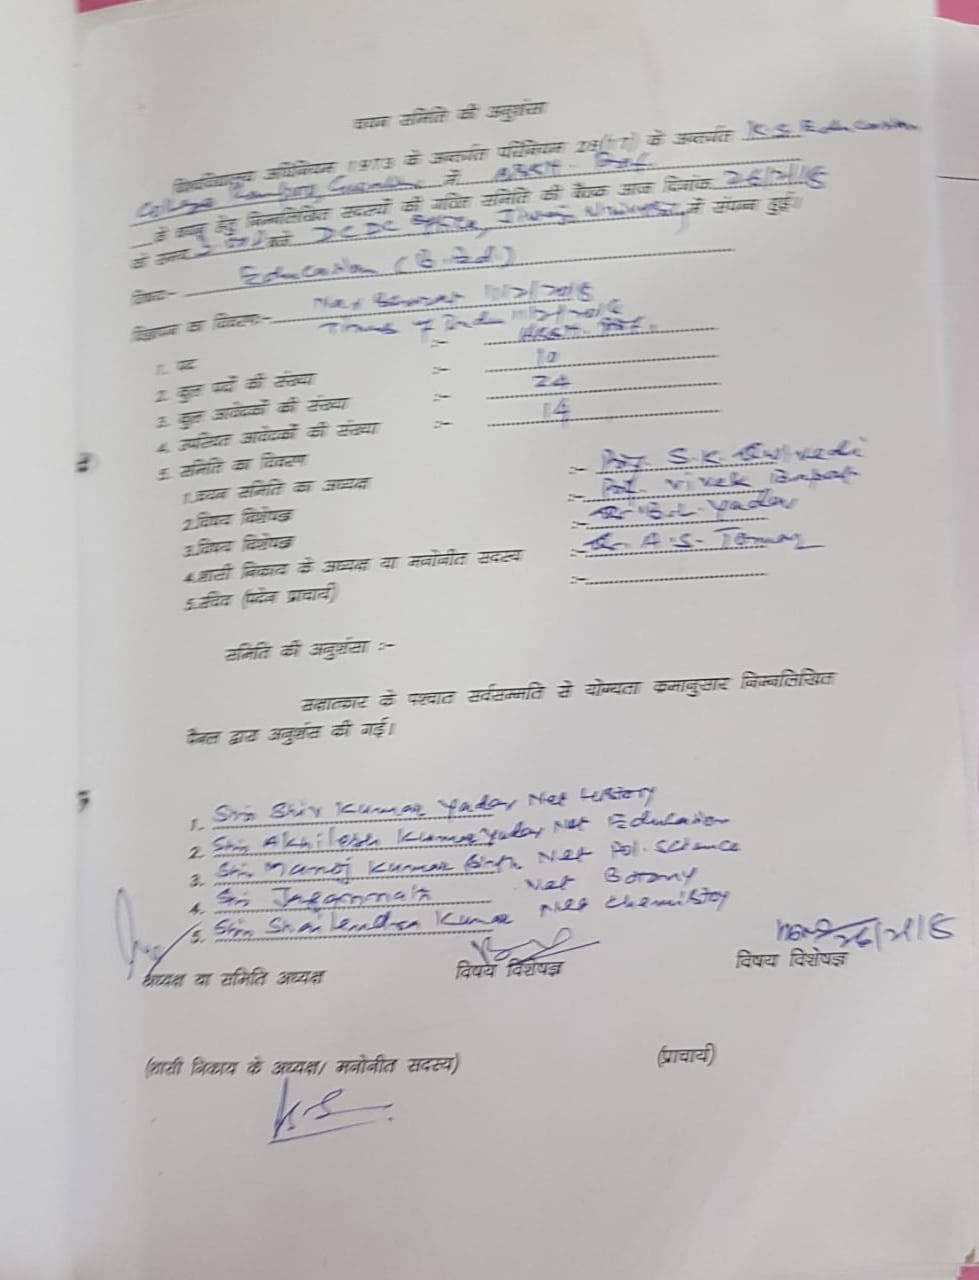 चयन समिति की अनुशंसा
विश्वविद्यालय अधिनियम 1973 के अन्तर्गत परिनियम 28(17) के अन्तर्गत K.S. Education
College में Asstt. Prof.
के पद हेतु निम्नलिखित सदस्यों की गठित समिति की बैठक आज दिनांक 26/2/18
को समय बजे DCDC office, Jiwaji University में संपन्न हुई।
विषय:- Education (B.Ed.)
विज्ञापन का विवरण:- 11/2/2018
Times of India 11/2/2018
1. पद :- Asstt. Prof.
2. कुल पदों की संख्या :- 10
3. कुल आवेदकों की संख्या :- 24
4. उपस्थित आवेदकों की संख्या :- 14
5. समिति का विवरण
1.चयन समिति का अध्यक्ष :- Prof. S.K. Dwivedi
2.विषय विशेषज्ञ :- Prof. Vivek Bapat
3.विषय विशेषज्ञ :- Dr. B.L. Yadav
4.शासी निकाय के अध्यक्ष या मनोनीत सदस्य :- Dr. A.S. Tomar
5.सचिव (पदेन प्राचार्य) :-
समिति की अनुशंसा :-
साक्षात्कार के पश्चात सर्वसम्मति से योग्यता कमानुसार निम्नलिखित
पैनल द्वारा अनुशंस की गई।
1. Shri Shiv Kumar Yadav Net History
2. Shri Akhilesh Kumar Yadav Net Education
3. Shri Manoj Kumar Net Pol. Science
4. Sri Jagannath Net Botany
5. Shri Shailendra Kumar Net Chemistry
26/2/18
अध्यक्ष या समिति अध्यक्ष विषय विशेषज्ञ विषय विशेषज्ञ
(शासी निकाय के अध्यक्ष/ मनोनीत सदस्य) (प्राचार्य)